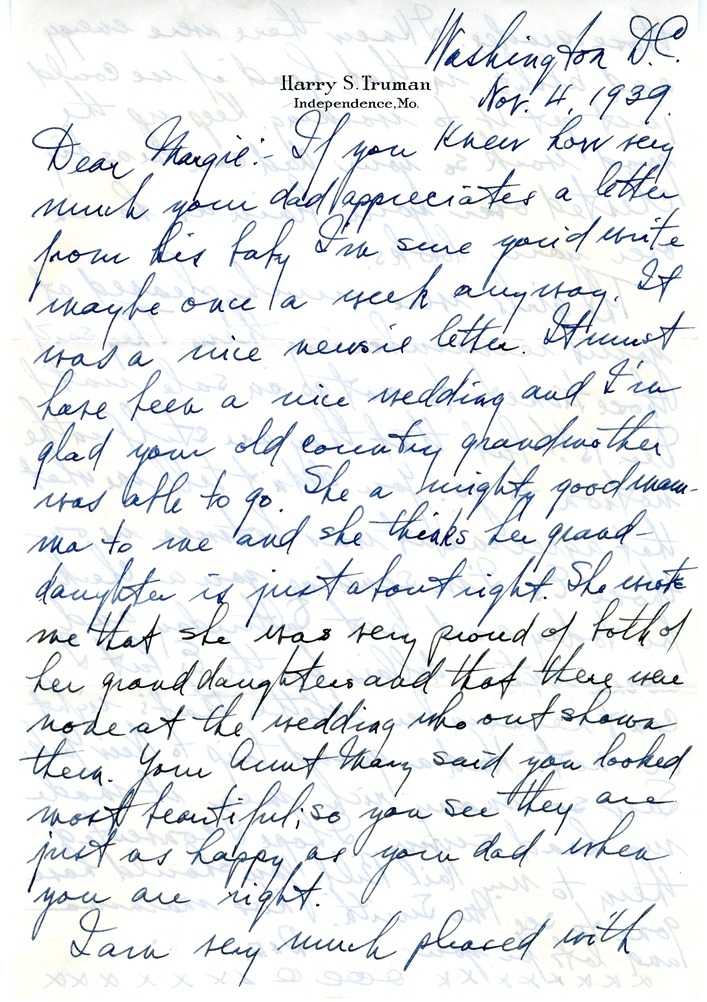 Washington D.C.
Harry S. Truman
Independence, Mo.
Nov. 4, 1939.
Dear Margie:- If you knew how very
much your dad appreciates a letter
from his baby I'm sure you'd write
maybe once a week anyway. It
was a nice newsie letter. It must
have been a nice wedding and I'm
glad your old country grandmother
was able to go. She a mighty good mam-
ma to me and she thinks her grand-
daughter is just about right. She wrote
me that she was very proud of both of
her granddaughters and that there were
none at the wedding who out shown
them. Your Aunt Mary said you looked
most beautiful; so you see they are
just as happy as your dad when
you are right.
I am very much pleased with